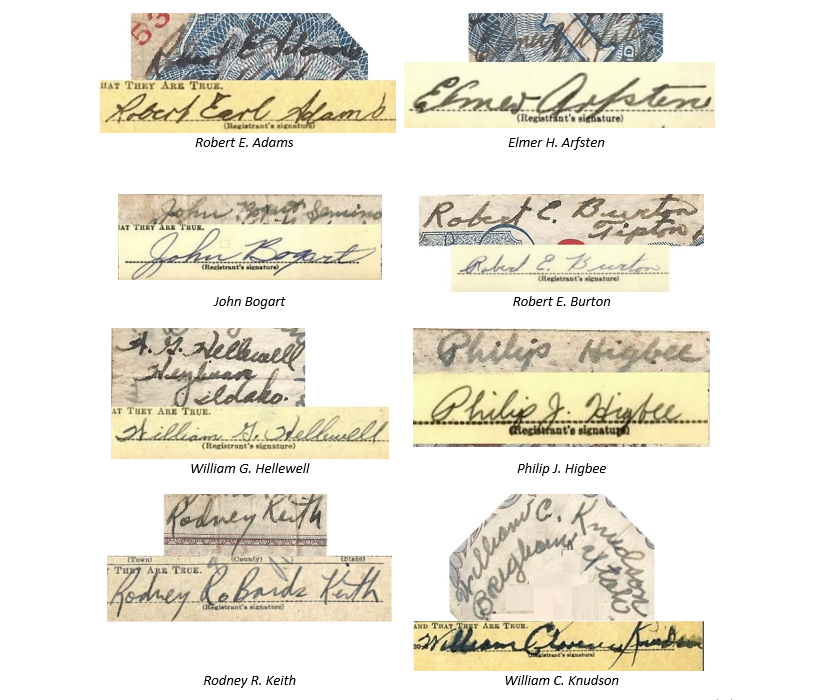 53
Robert E. Adams
HAT THEY ARE TRUE.
Robert Earl Adams
(Registrant's signature)
Robert E. Adams
Elmer Arfsten
(Registrant's signature)
Elmer H. Arfsten
John Bogart
AT THEY ARE TRUE.
John Bogart
(Registrant's signature)
John Bogart
Robert E. Burton
Tipton
Robert E. Burton
(Registrant's signature)
Robert E. Burton
W. G. Hellewell
Heyburn
Idaho.
AT THEY ARE TRUE.
William G. Hellewell
(Registrant's signature)
William G. Hellewell
Philip Higbee
Philip J. Higbee
(Registrant's signature)
Philip J. Higbee
Rodney Keith
(Town) (County) (State)
THEY ARE TRUE.
Rodney RoBards Keith
(Registrant's signature)
Rodney R. Keith
William C. Knudson
Brigham Utah
AND THAT THEY ARE TRUE.
William Clarence Knudson
(Registrant's signature)
William C. Knudson